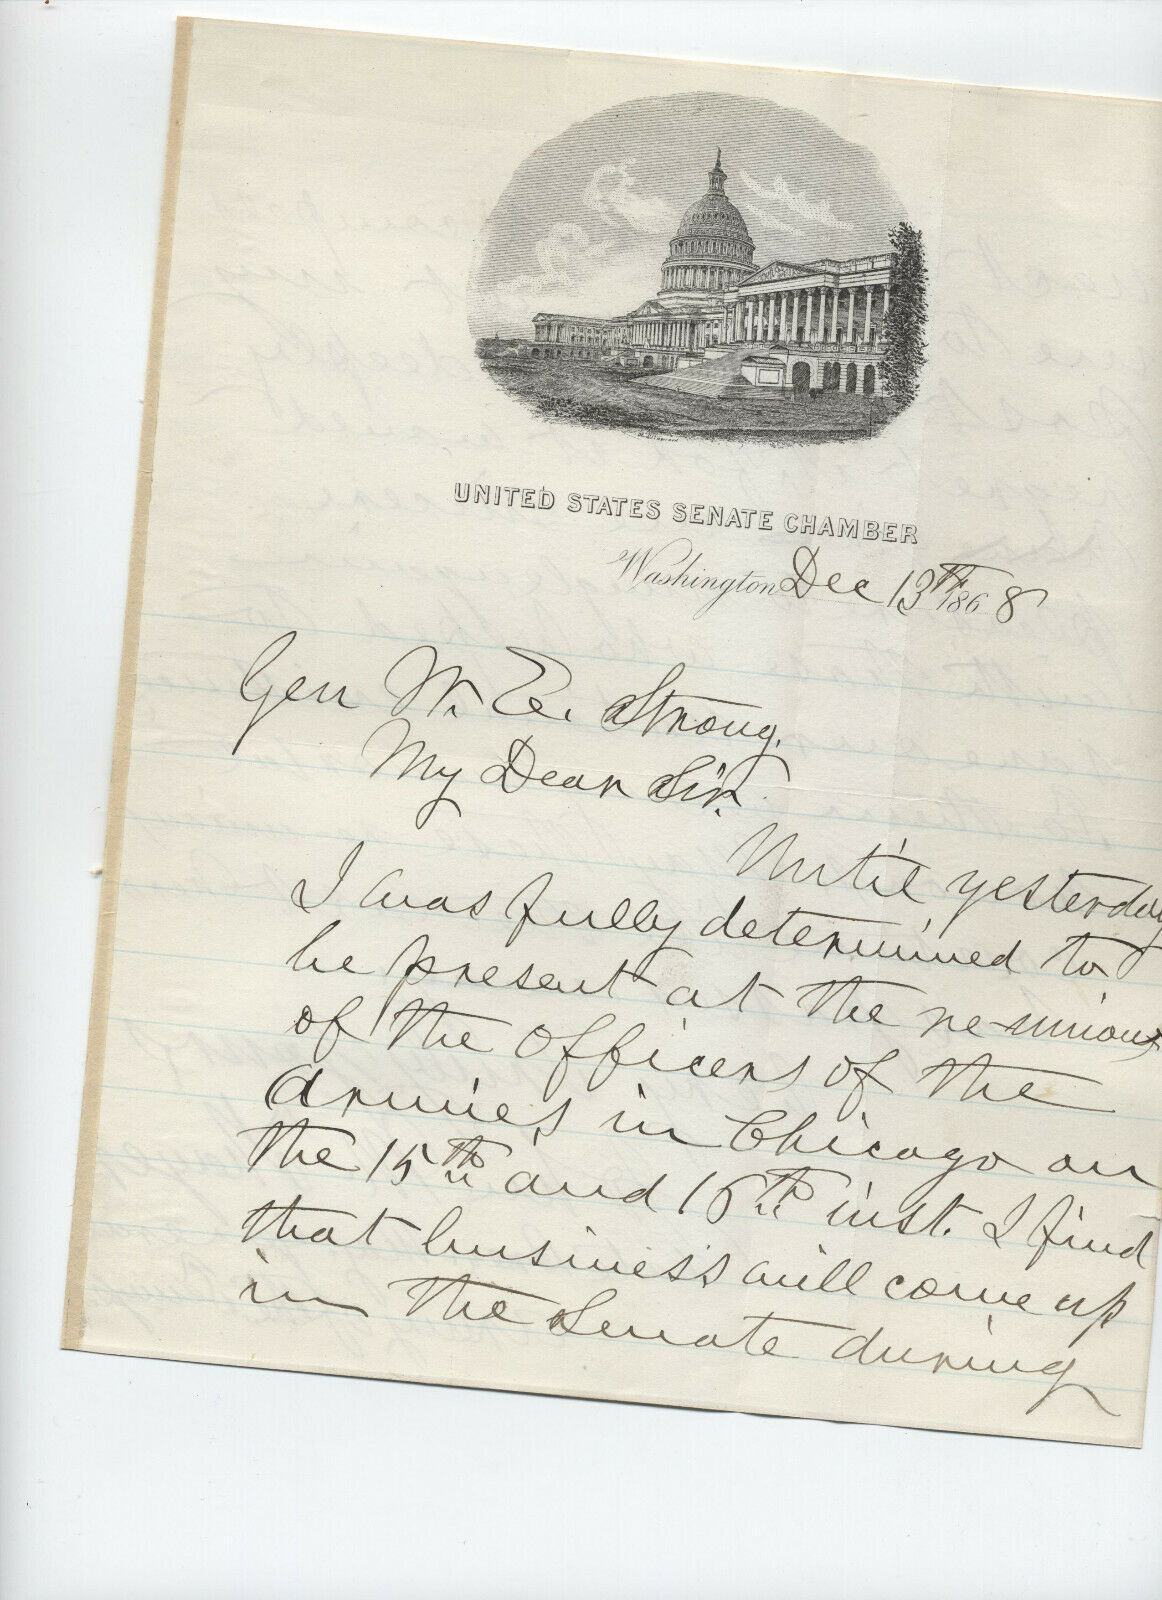 UNITED STATES SENATE CHAMBER
Washington Dec 13th 1868
Gen W. E. Strong.
My Dear Sir.
Until yesterday
I was fully determined to
be present at the re-unions
of the Officers of the
Armies in Chicago on
the 15th and 16th inst. I find
that business will come up
in the Senate during